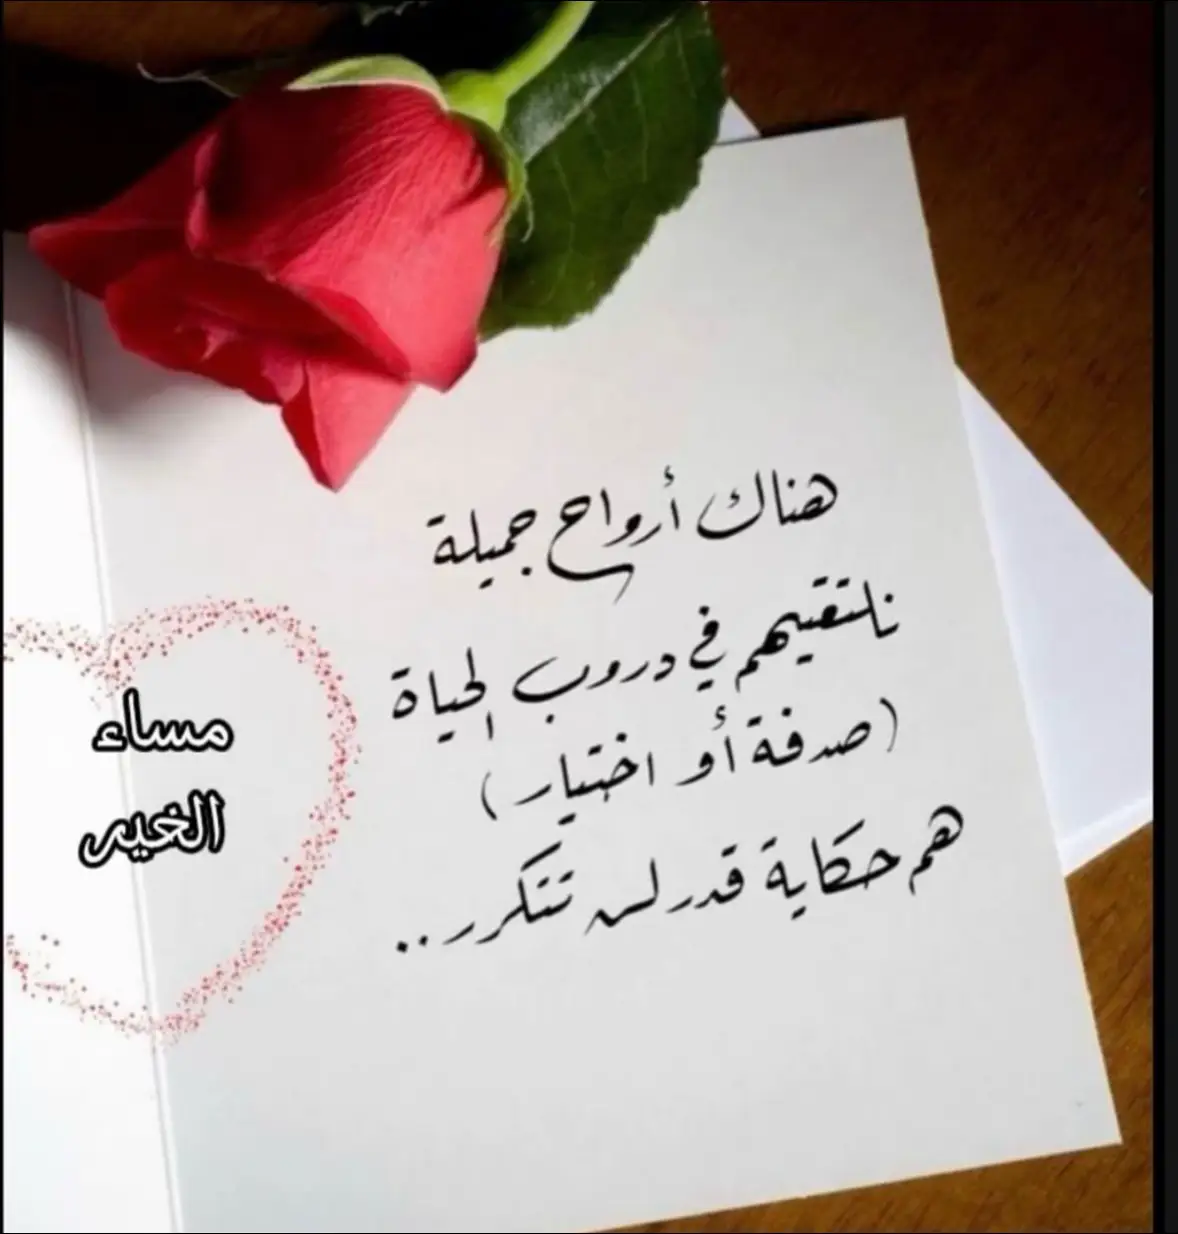 هناك أرواح جميلة
نلتقيهم في دروب الحياة
(صدفة أو اختيار)
هم حكاية قدر لن تتكرر..
مساء
الخير